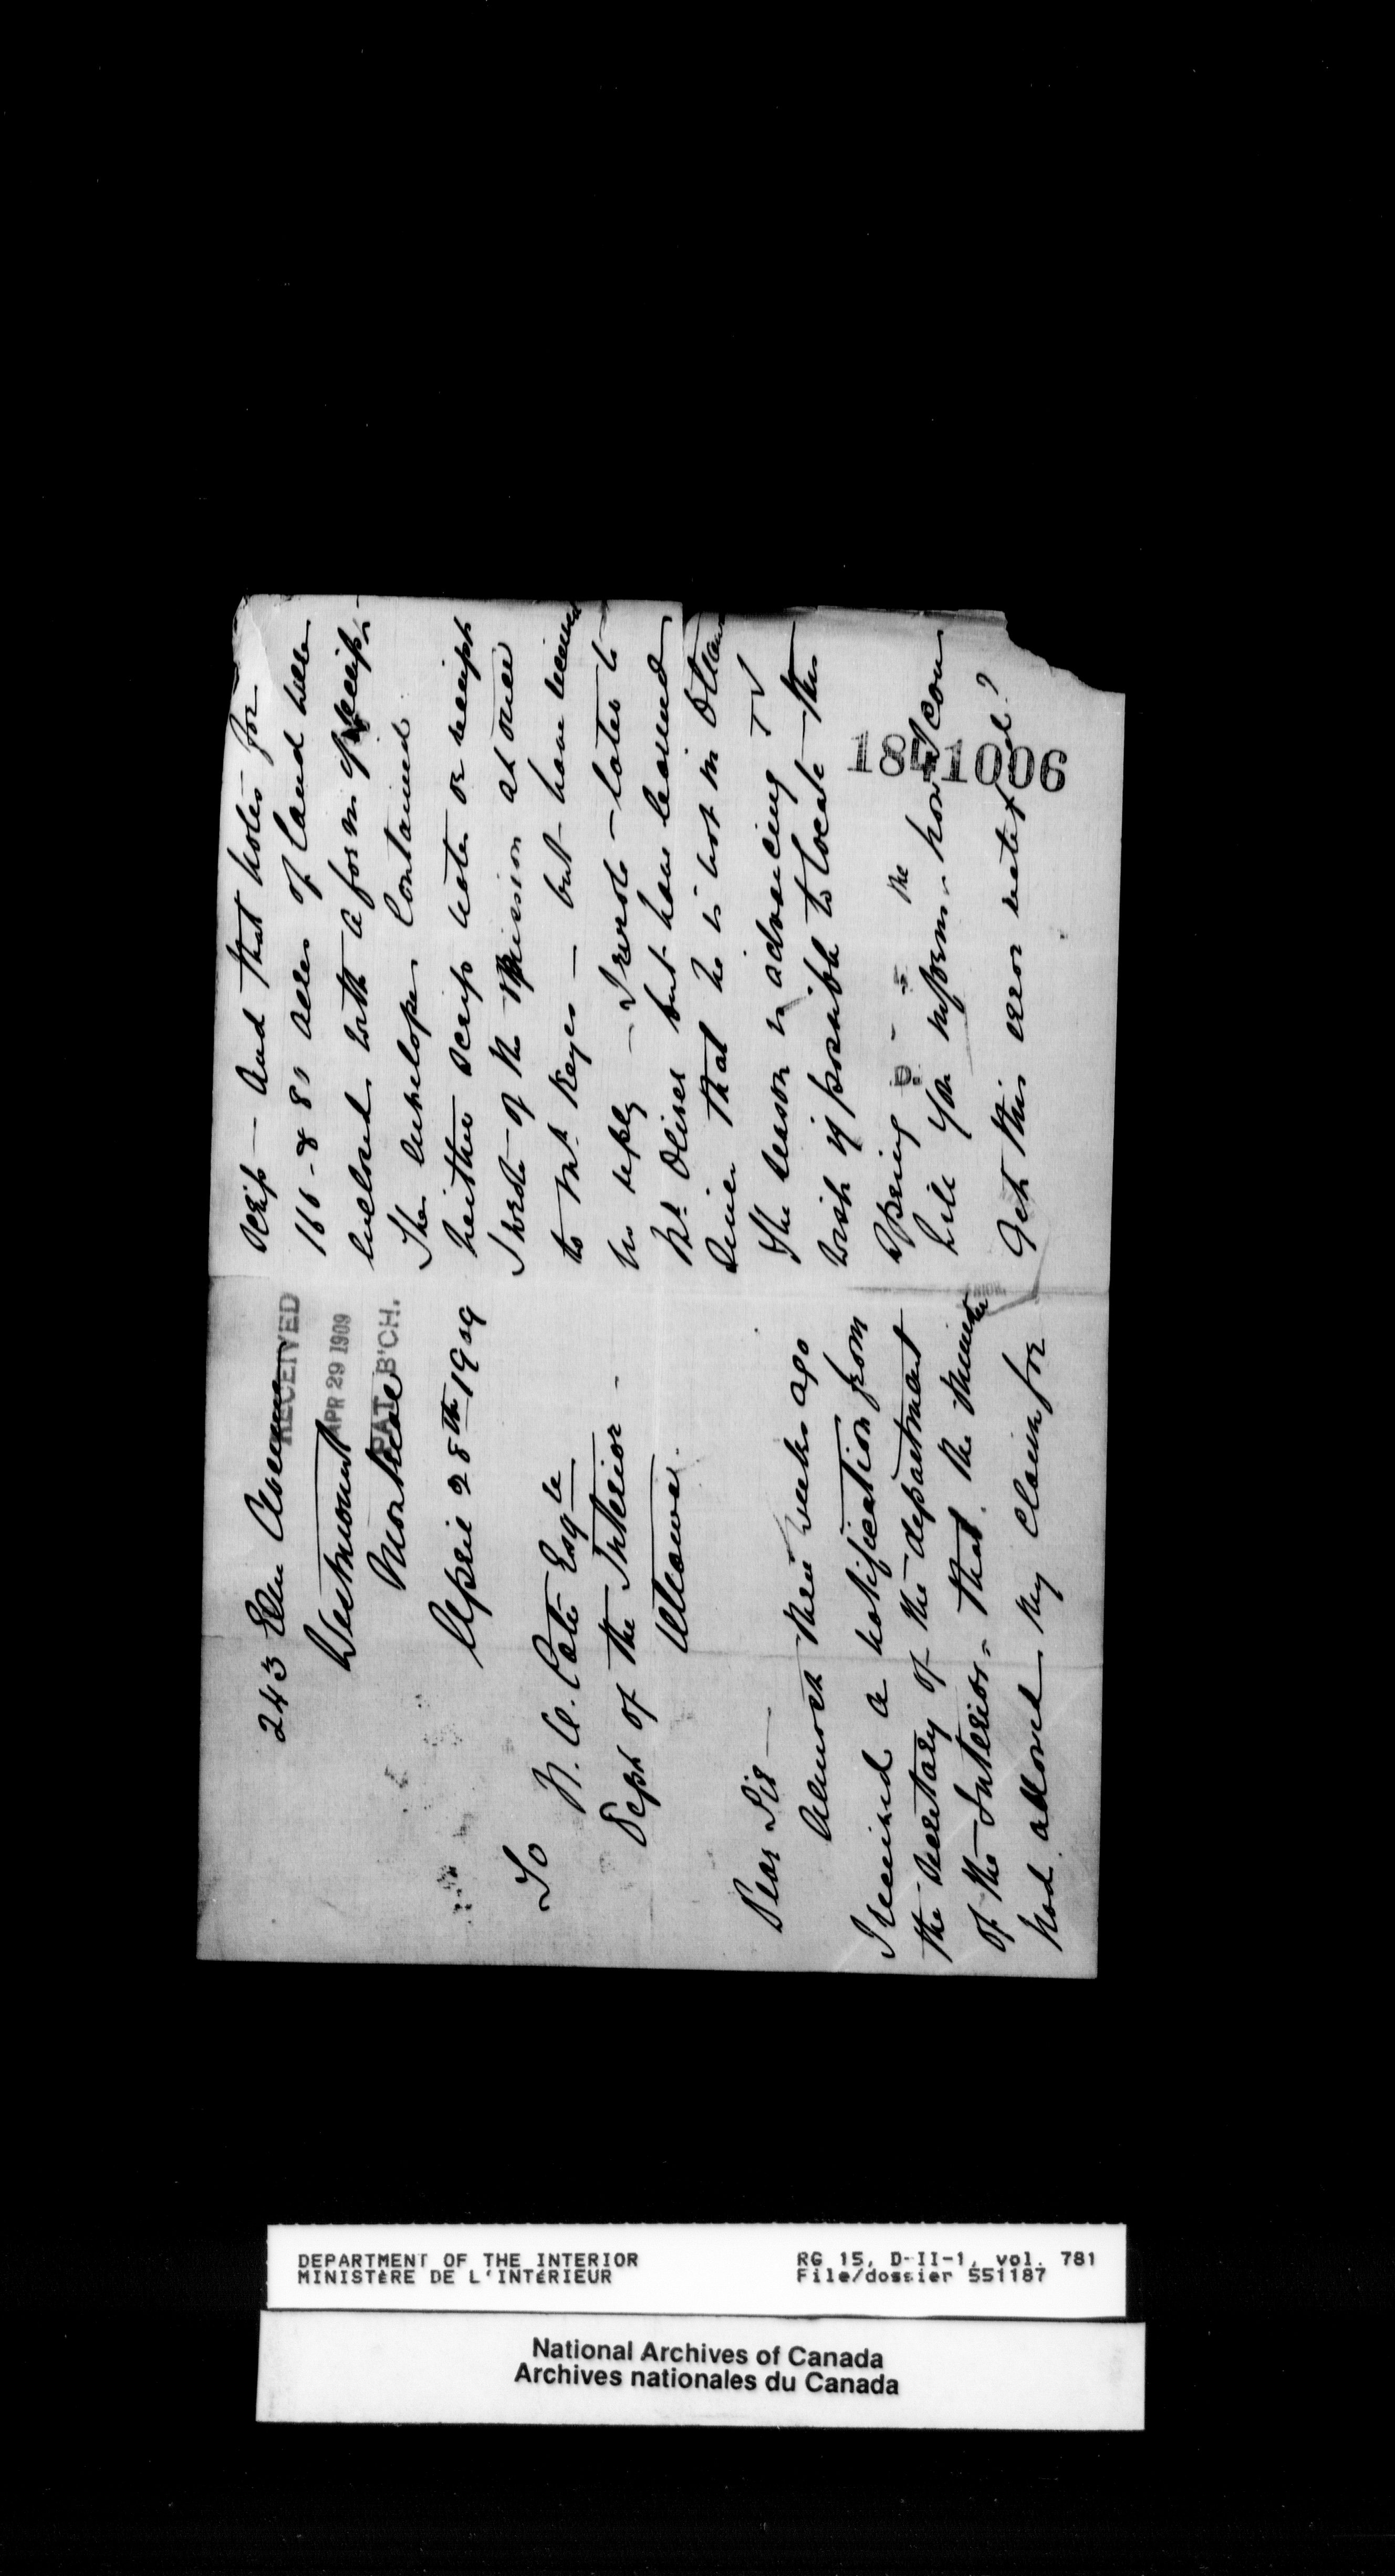 243 Elm Avenue
RECEIVED
Westmount
APR 29 1909
Montreal
PAT. B'CH.
April 28th 1909
To
N. O. Coté Esqre
Dept of the Interior -
Ottawa.
Dear Sir —
Almost three weeks ago
I received a notification from
the Secretary of the department
of the Interior, that the Minister
had allowed my claim for
scrip — And that notes for
160 - & 80 acres of land were
enclosed with a form of receipt -
The envelope contained
neither scrip notes or receipt
I wrote of the omission at once
to Mr Keyes — but have received
no reply — I wrote later to
Mr Oliver but have learned
since that he is not in Ottawa
The season is advancing & I
wish if possible to locate this
Spring
1841006
D.
will you inform me how I can
get this error rectified?
DEPARTMENT OF THE INTERIOR
MINISTÈRE DE L'INTÉRIEUR
RG 15, D-II-1, vol. 781
File/dossier 551187
National Archives of Canada
Archives nationales du Canada